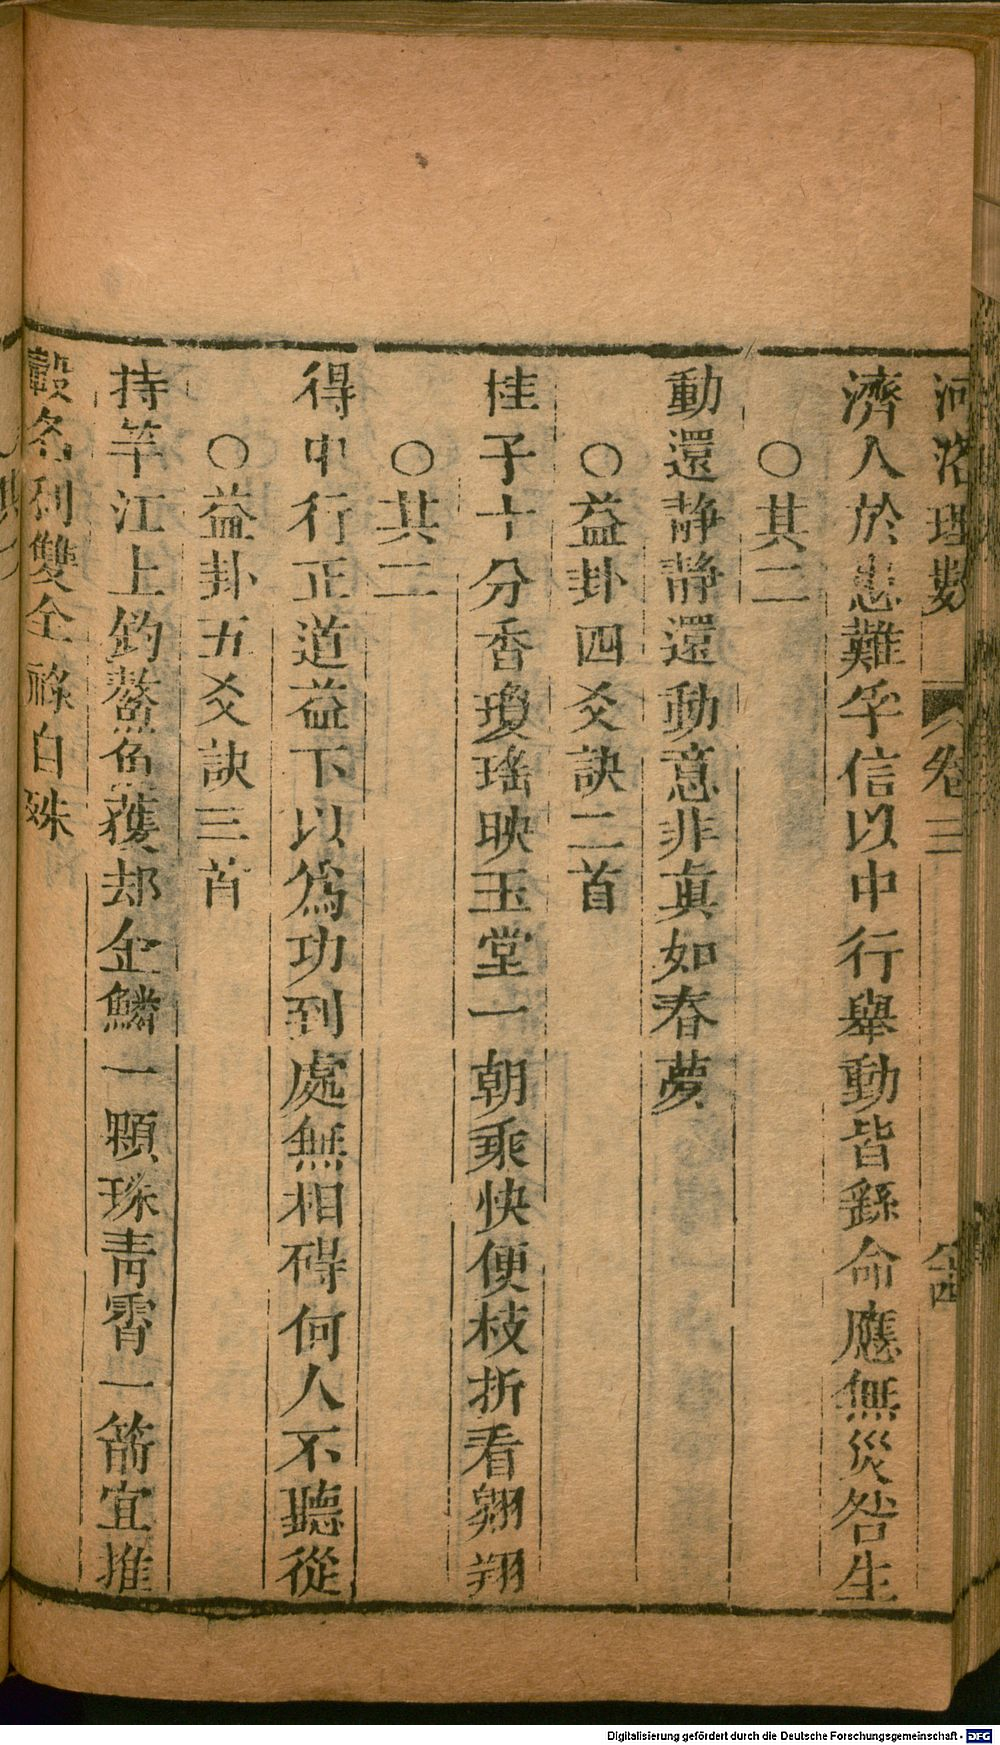 河洛理數 卷三
濟人於患難孚信以中行舉動皆繇命應無災咎生
○其二
動還静靜還動意非眞如春夢
○益卦四爻訣二首
桂子十分香瓊瑤映玉堂一朝乘快便枝折看翱翔
○其二
得中行正道益下以爲功到處無相碍何人不聽從
○益卦五爻訣三首
持竿江上釣鰲魚獲却金鱗一顆珠靑霄一箭宜推
轂名利雙全祿自殊
Digitalisierung gefördert durch die Deutsche Forschungsgemeinschaft - DFG